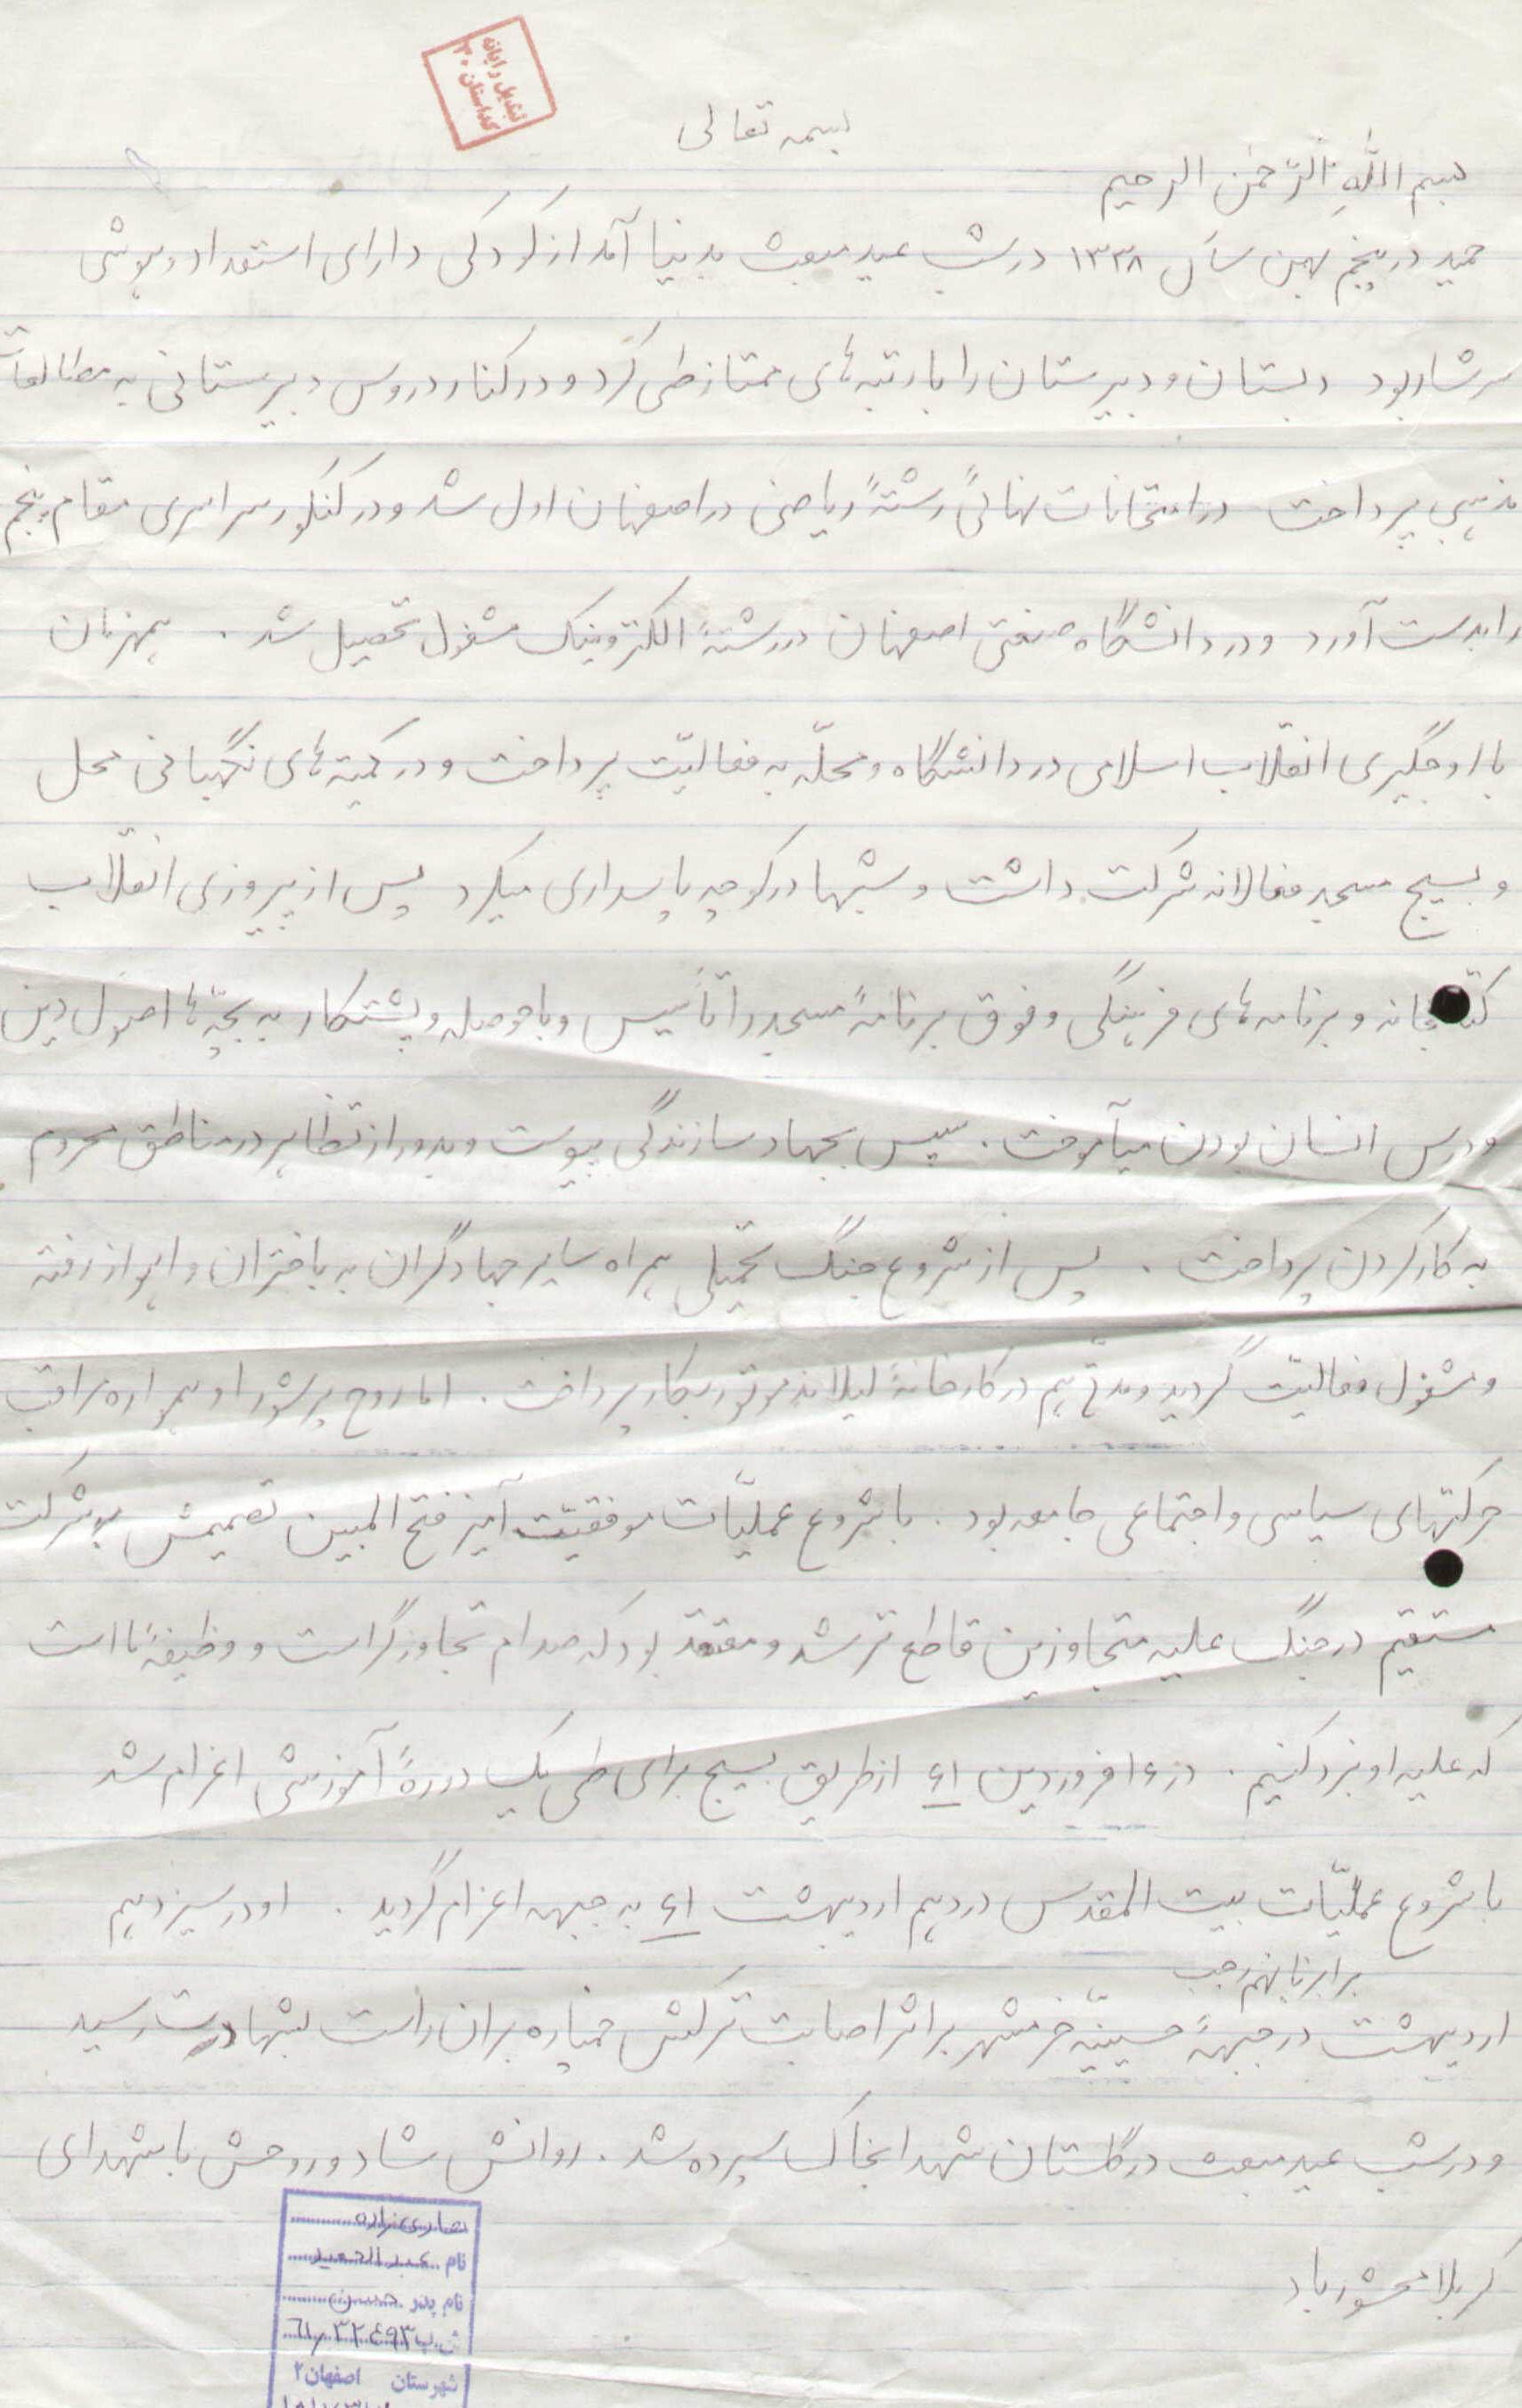 تبدیل رایانه
کد استان ۳۰
بسمه تعالی
بسم اللّهِ الرّحمٰن الرحیم
حمید در پنجم بهمن سال ۱۳۳۸ در شب عید مبعث بدنیا آمد از کودکی دارای استعداد و هوشی
سرشار بود دبستان و دبیرستان را با رتبه‌های ممتاز طی کرد و در کنار دروس دبیرستانی به مطالعات
مذهبی پرداخت در امتحانات نهائی رشتهٔ ریاضی در اصفهان اول شد و در کنکور سراسری مقام پنجم
را بدست آورد و در دانشگاه صنعتی اصفهان در رشتهٔ الکترونیک مشغول تحصیل شد . همزمان
با اوجگیری انقلاب اسلامی در دانشگاه و محلّه به فعالیّت پرداخت و در کمیته‌های نگهبانی محل
و بسیج مسجد فعالانه شرکت داشت و شبها در کوچه پاسداری میکرد پس از پیروزی انقلاب
کتابخانه و برنامه‌های فرهنگی و فوق برنامهٔ مسجد را تأسیس و با حوصله و پشتکار به بچّه‌ها اصول دین
و درس انسان بودن میآموخت . سپس بجهاد سازندگی پیوست و بدور از تظاهر در مناطق محروم
به کار کردن پرداخت . پس از شروع جنگ تحمیلی همراه سایر جهادگران به باختران و اهواز رفته
و مشغول فعالیّت گردید و مدتی هم در کارخانهٔ لیلاند موتور بکار پرداخت . اما روح پر شور او همواره مراقب
حرکتهای سیاسی و اجتماعی جامعه بود . با شروع عملیّات موفقیّت آمیز فتح المبین تصمیمش به شرکت
مستقیم در جنگ علیه متجاوزین قاطع تر شد و معتقد بود که صدام تجاوزگر است و وظیفهٔ ما است
که علیه او نبرد کنیم . در ۱۶ فروردین ۶۱ از طریق بسیج برای طی یک دورهٔ آموزشی اعزام شد
با شروع عملیّات بیت المقدس در دهم اردیبهشت ۶۱ به جبهه اعزام گردید . او در سیزدهم
برابر با نهم رجب
اردیبهشت در جبههٔ حسینیّه خرمشهر بر اثر اصابت ترکش خمپاره بران راست بشهادت رسید
و در شب عید مبعث در گلستان شهدا بخاک سپرده شد . روانش شاد و روحش با شهدای
کربلا محشور باد
نام عبدالحمید
نام پدر حسن
ش.پ ۶۱/۳۲۴۹۳
شهرستان اصفهان ۲